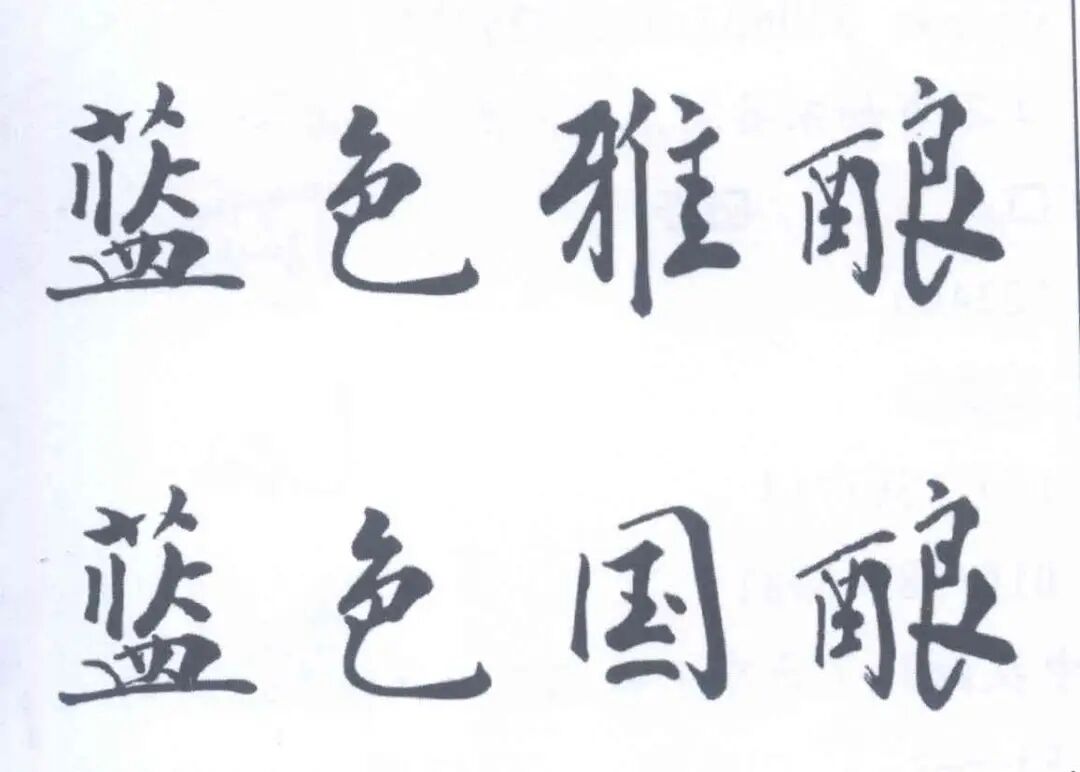 蓝色雅酿
蓝色国酿